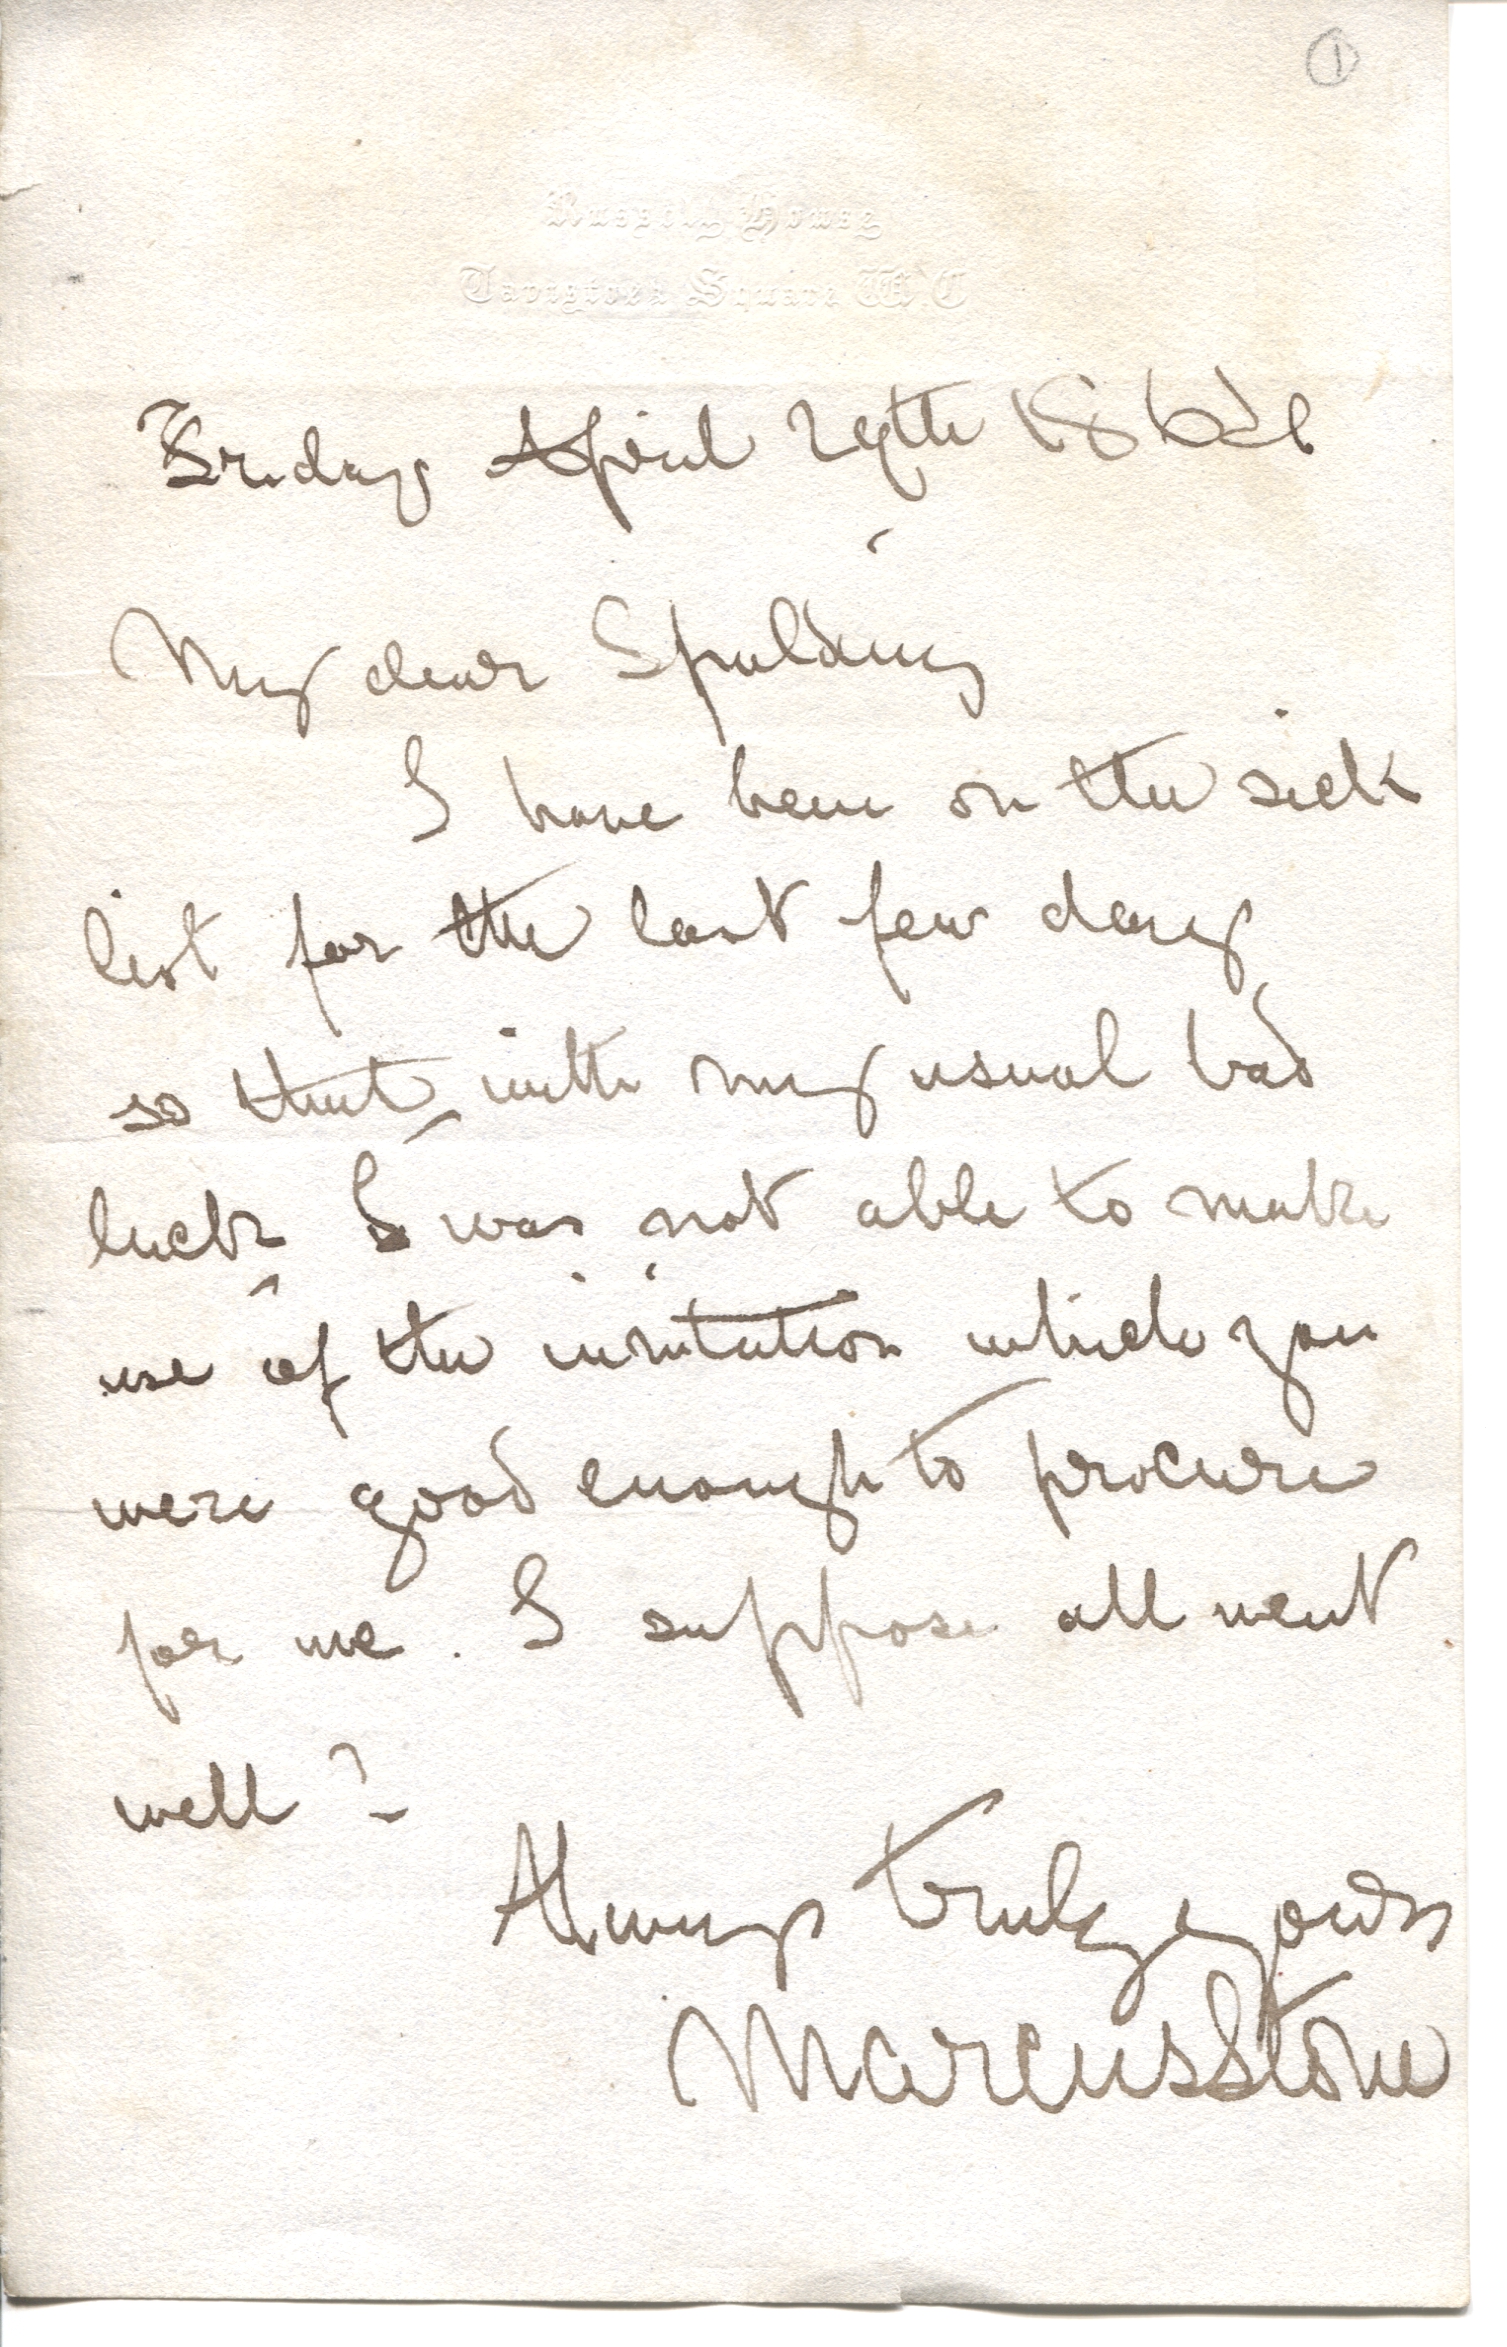 1
Russell House
Tavistock Square W.C
Friday April 29th 1864
My dear Spalding
I have been on the sick
list for the last few days
so that, with my usual bad
luck, I was not able to make
use of the invitation which you
were good enough to procure
for me. I suppose all went
well?
Always truly yours
Marcus Stone